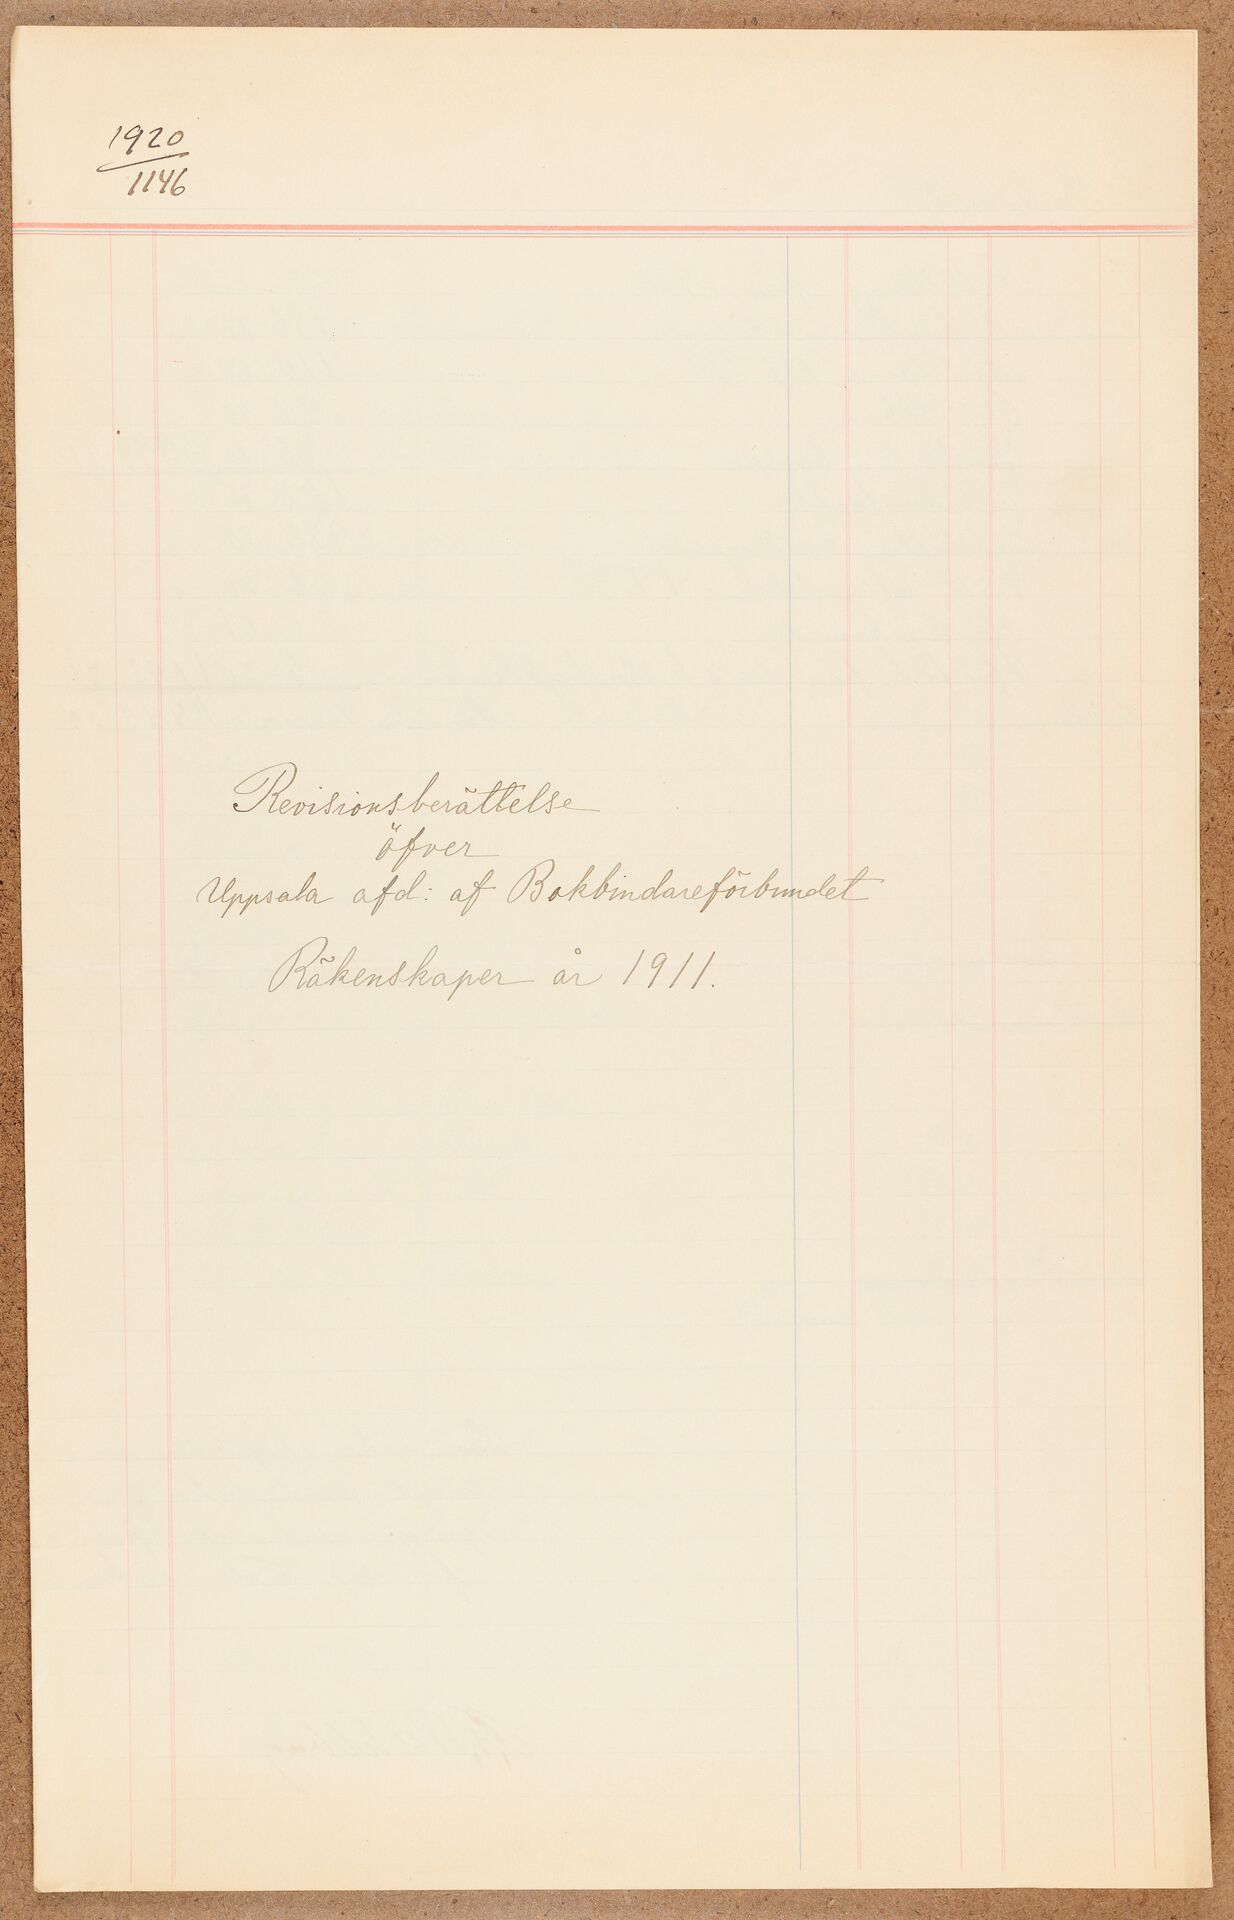 1920
1146
Revisionsberättelse
öfver
Uppsala afd: af Bokbindareförbundet
Räkenskaper år 1911.